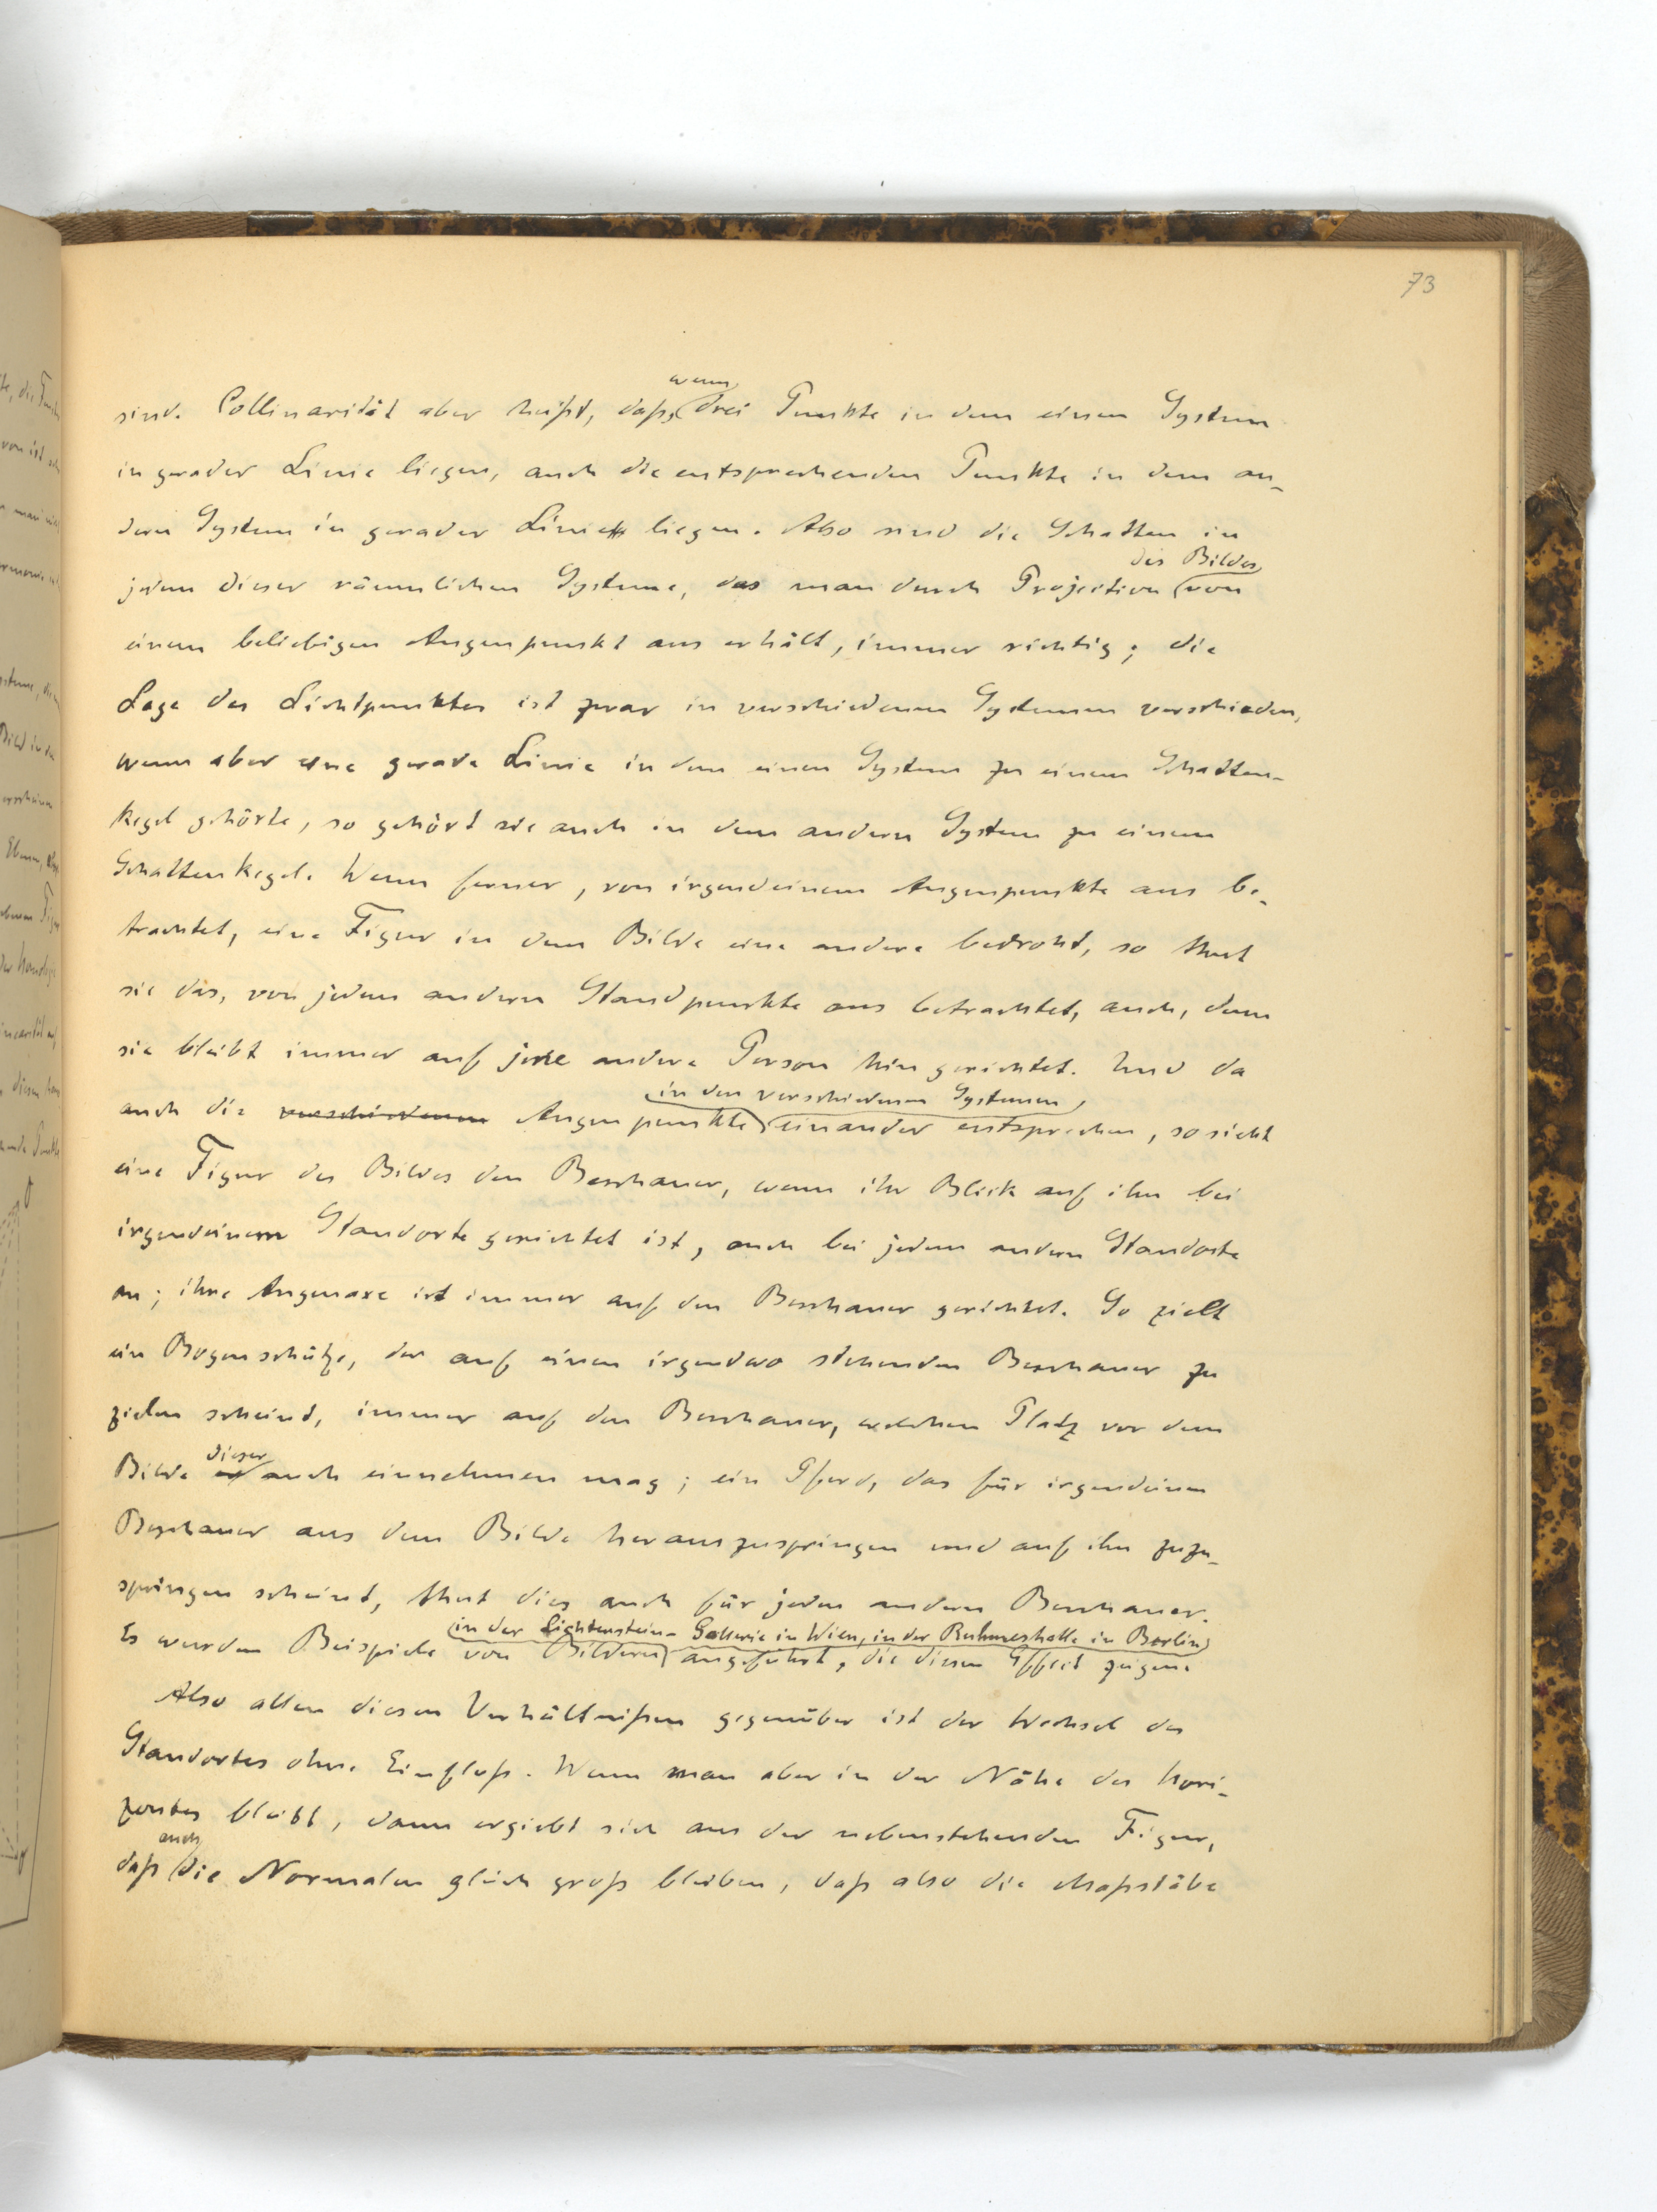 73
sind. Collinarität aber heißt, daß, wenn drei Punkte in dem einen System
in gerader Linie liegen, auch die entsprechenden Punkte in dem an-
dern System in gerader Linie liegen. Also sind die Schatten in
jedem dieser räumlichen Systeme, das man durch Projection des Bildes von
einem beliebigen Augenpunkt aus erhält, immer richtig; die
Lage des Lichtpunktes ist zwar in verschiedenen Systemen verschieden,
wenn aber eine gerade Linie in dem einen System zu einem Schatten-
kegel gehörte, so gehört sie auch in dem andern System zu einem
Schattenkegel. Wenn ferner, von irgendeinem Augenpunkte aus be-
trachtet, eine Figur in dem Bilde eine andere bedroht, so thut
sie das, von jedem andern Standpunkte aus betrachtet, auch, denn
sie bleibt immer auf jene andere Person hin gerichtet. Und da
auch die verschiedenen Augenpunkte in den verschiedenen Systemen einander entsprechen, so sieht
eine Figur des Bildes den Beschauer, wenn ihr Blick auf ihn bei
irgendeinem Standorte gerichtet ist, auch bei jedem andern Standorte
an; ihre Augenaxe ist immer auf den Beschauer gerichtet. So zielt
ein Bogenschütze, der auf einen irgendwo stehenden Beschauer zu
zielen scheint, immer auf den Beschauer, welchen Platz vor dem
Bilde er dieser auch einnehmen mag; ein Pferd, das für irgendeinen
Beschauer aus dem Bilde herauszuspringen und auf ihn zuzu-
springen scheint, thut dies auch für jeden andern Beschauer.
Es wurden Beispiele von Bildern in der Lichtenstein-Gallerie in Wien, in der Ruhmeshalle in Berlin angeführt, die diesen Effect zeigen.
Also allen diesen Verhältnißen gegenüber ist der Wechsel des
Standortes ohne Einfluß. Wenn man aber in der Nähe des Hori-
zontes bleibt, dann ergiebt sich aus der nebenstehenden Figur,
daß auch die Normalen gleich groß bleiben, daß also die Maßstäbe